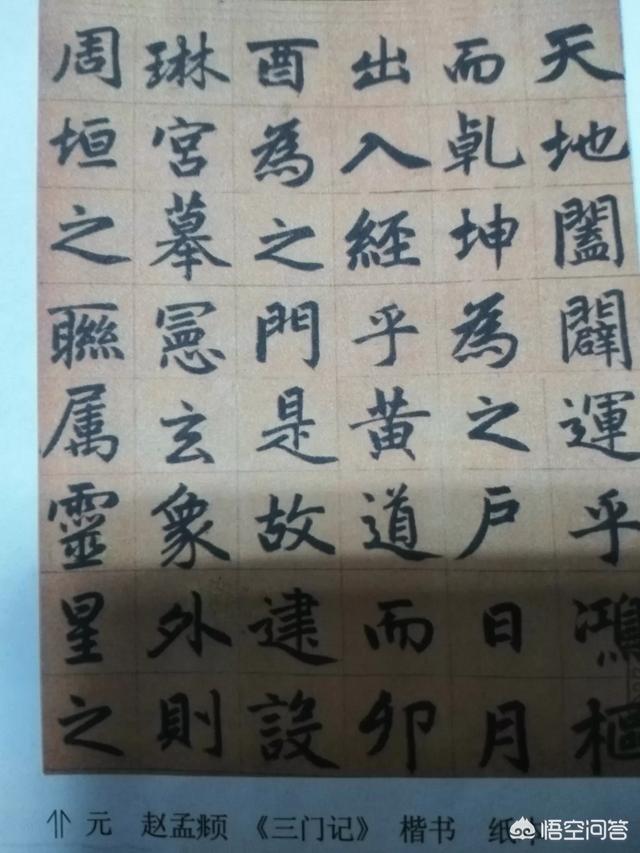 天地闔闢運乎鴻樞
而乹坤為之戶日月
出入經乎黃道而卯
酉為之門是故建設
琳宮摹憲玄象外則
周垣之聯属靈星之
⇑ 元 赵孟頫 《三门记》 楷书 纸本
悟空问答